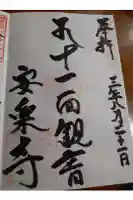 奉拝
三年八月二十一日
十一面観音
安楽寺